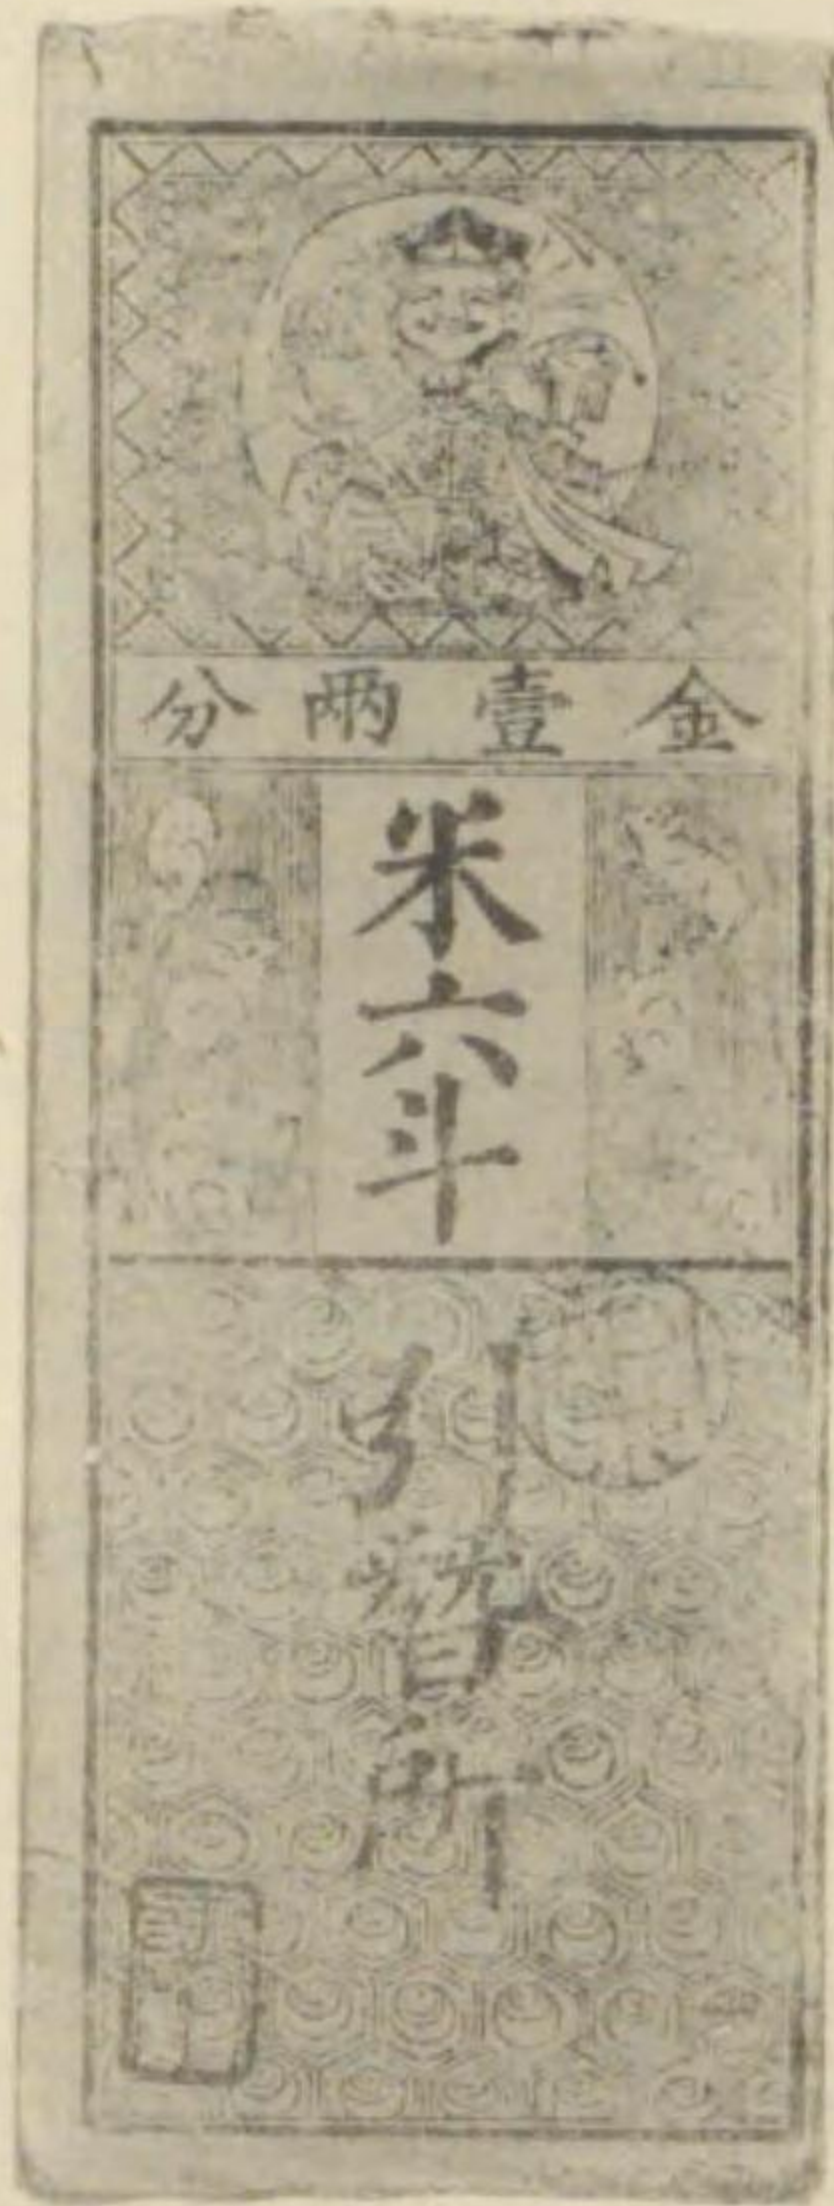 金壹兩分
米六斗
引替所